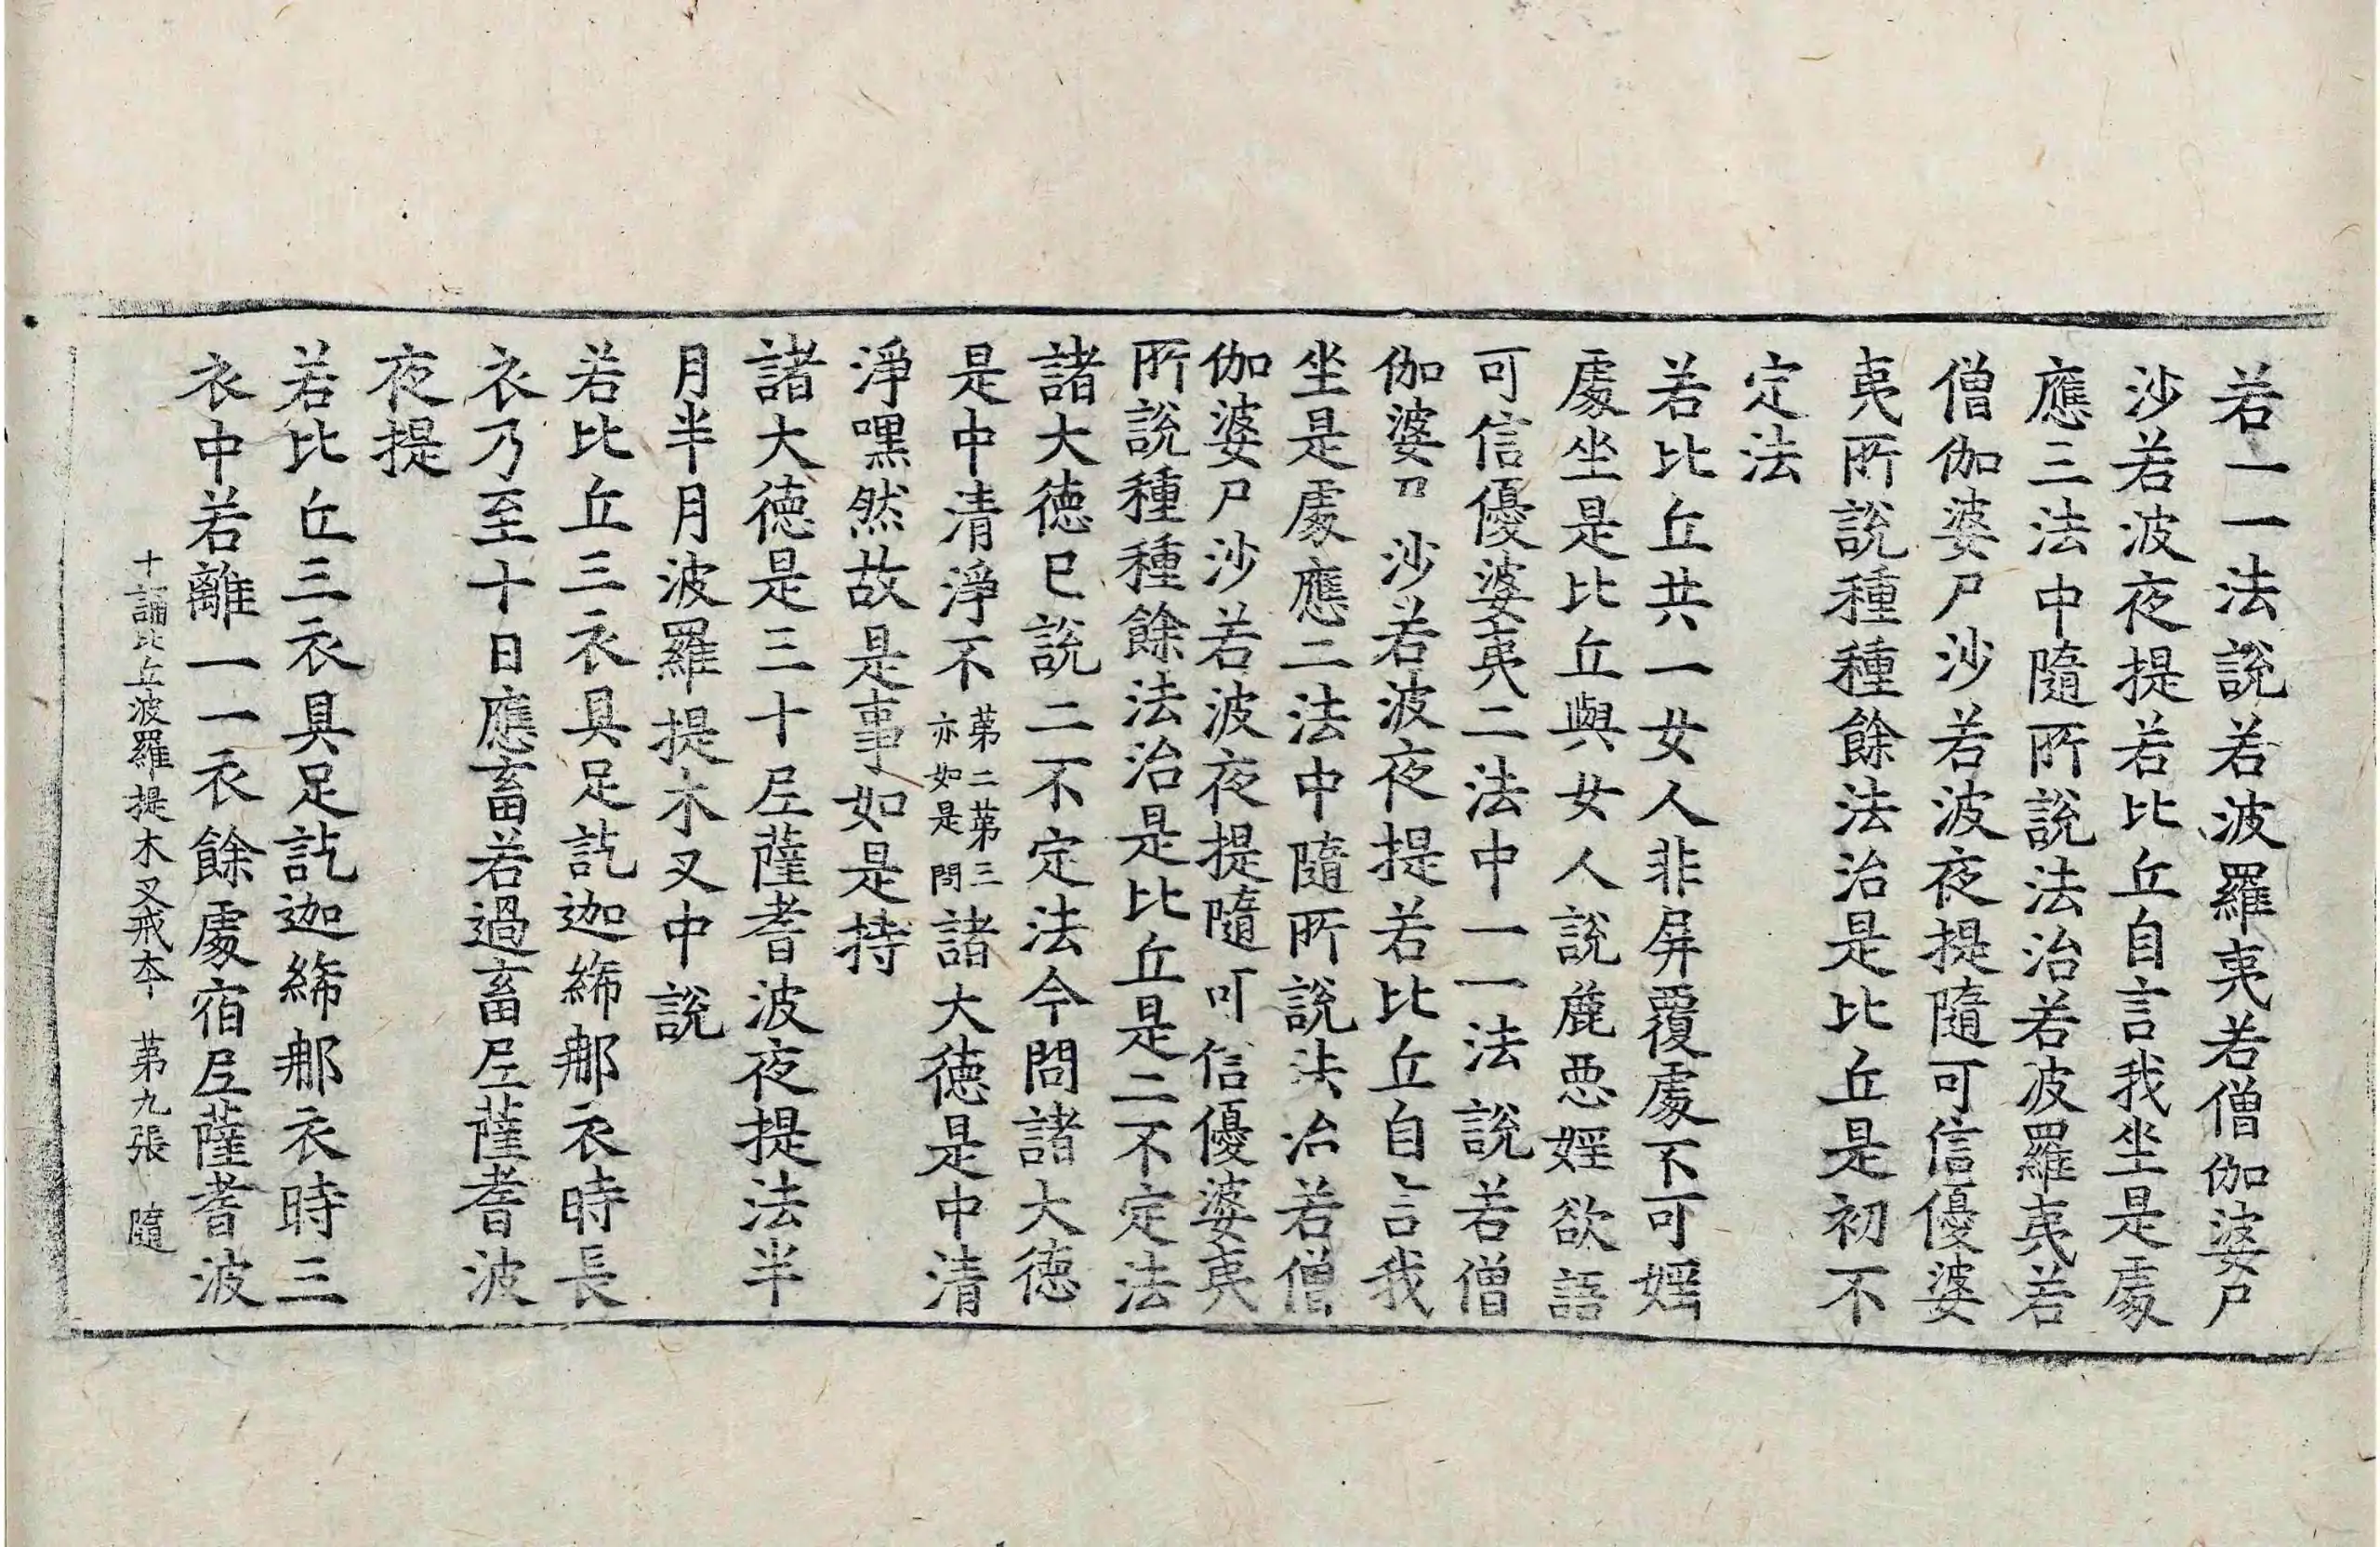 若一一法說若波羅夷若僧伽婆尸
沙若波夜提若比丘自言我坐是處
應三法中隨所說法治若波羅夷若
僧伽婆尸沙若波夜提隨可信優婆
夷所說種種餘法治是比丘是初不
定法
若比丘共一女人非屏覆處不可婬
處坐是比丘與女人說麁惡婬欲語
可信優婆夷二法中一一法說若僧
伽婆尸沙若波夜提若比丘自言我
坐是處應二法中隨所說法治若僧
伽婆尸沙若波夜提隨可信優婆夷
所說種種餘法治是比丘是二不定法
諸大德已說二不定法今問諸大德
是中清淨不第二第三亦如是問諸大德是中清
淨嘿然故是事如是持
諸大德是三十尼薩耆波夜提法半
月半月波羅提木叉中說
若比丘三衣具足訖迦絺那衣時長
衣乃至十日應畜若過畜尼薩耆波
夜提
若比丘三衣具足訖迦絺那衣時三
衣中若離一一衣餘處宿尼薩耆波
十誦比丘波羅提木叉戒本 第九張 隨